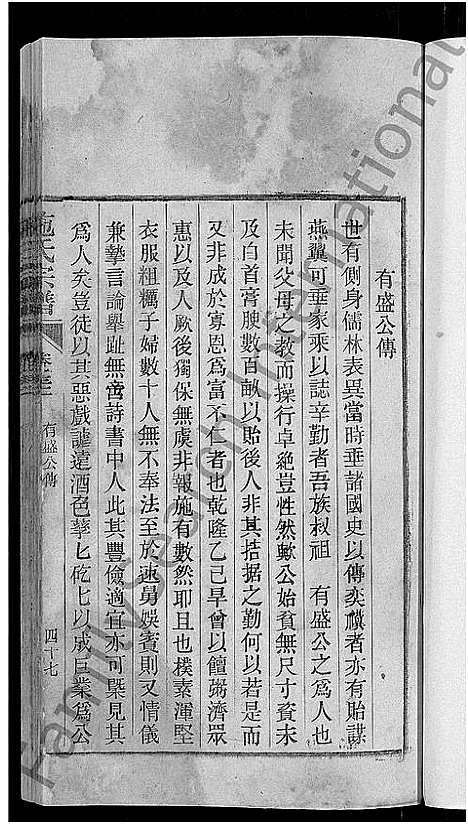 有盛公傳
世有側身儒林表異當時垂諸國史以傳奕禩者亦有貽謀
燕翼可垂家乘以誌辛勤者吾族叔祖 有盛公之爲人也
未聞父母之教而操行卓絶豈性然歟公始貧無尺寸資未
及白首膏腴數百畝以貽後人非其拮据之勤何以若是而
又非成於寡恩爲富不仁者也乾隆乙巳旱曾以饘粥濟眾
惠以及人厥後獨保無虞非報施有數然耶且也樸素渾堅
衣服粗糲子婦數十人無不奉法至於速舅娛賓則又情儀
兼摯言論舉趾無啻詩書中人此其豐儉適宜亦可槩見其
爲人矣豈徒以其惡戲謔遠酒色孳七矻七以成巨業爲公
施氏宗譜
卷三
有盛公傳
四十七
FamilySearch International